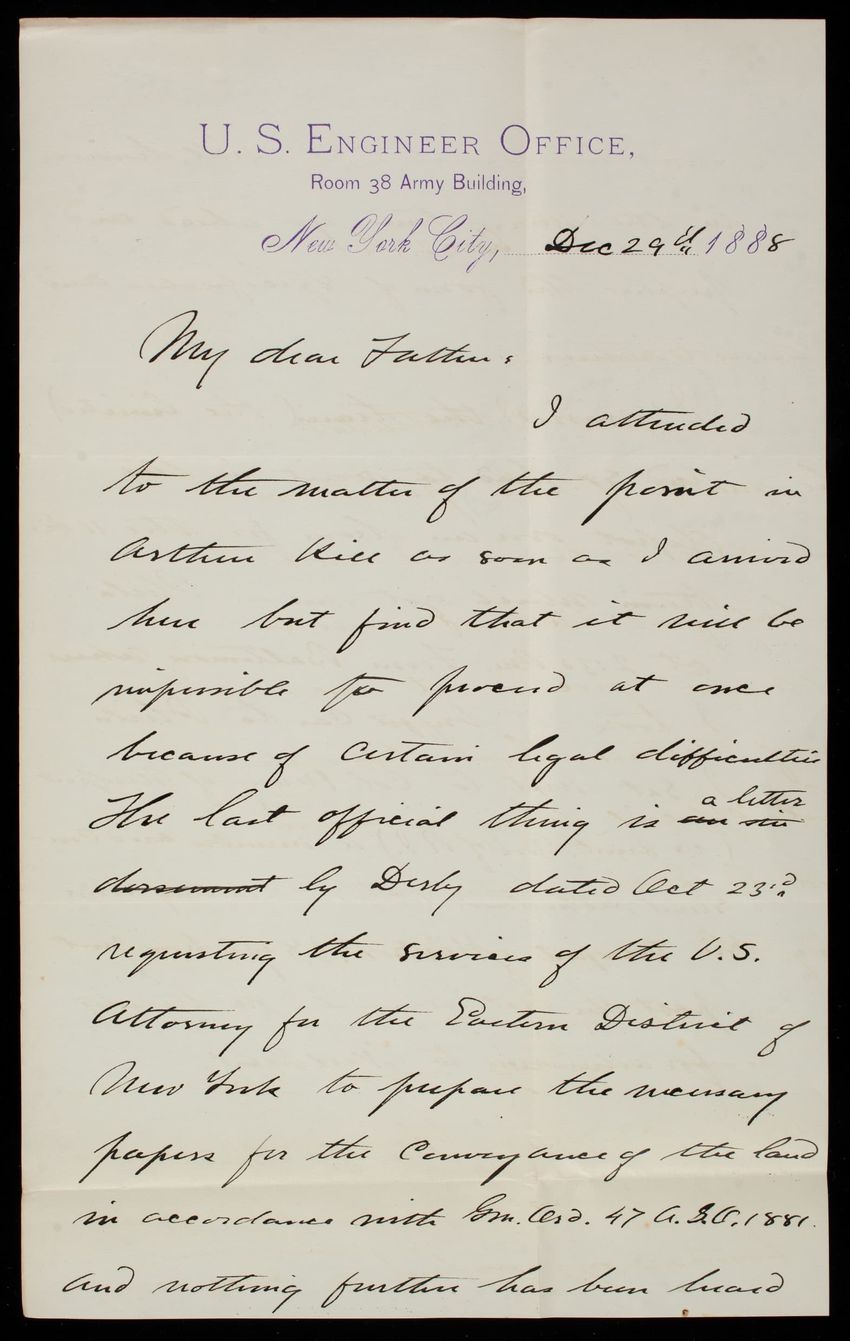 U. S. ENGINEER OFFICE,
Room 38 Army Building,
New York City, Dec 29d 1888
My dear Father:
I attended
to the matter of the point in
Arthur Kill as soon as I arrived
here but find that it will be
impossible to proceed at once
because of certain legal difficulties
a letter
The last official thing is an
by Derby dated Oct 23rd
requesting the services of the U.S.
Attorney for the Eastern District of
New York to prepare the necessary
papers for the conveyance of the land
in accordance with Gen. Ord. 47 A.G.O. 1881.
and nothing further has been heard